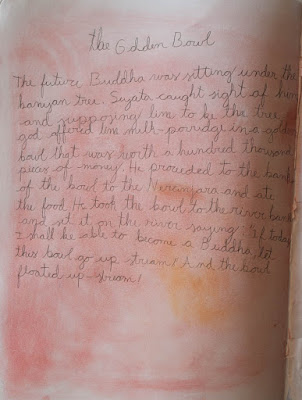 the Golden Bowl
The future Buddha was sitting under the
banyan tree. Sujata caught sight of him
and supposing him to be the tree
god offered him milk-porridge in a golden
bowl that was worth a hundred thousand
pieces of money. He proceeded to the bank
of the bowl to the Neranjara and ate
the food. He took the bowl to the river bank
and set it on the river saying: "If today
I shall be able to become a Buddha, let
this bowl go up stream! And the bowl
floated up-stream!